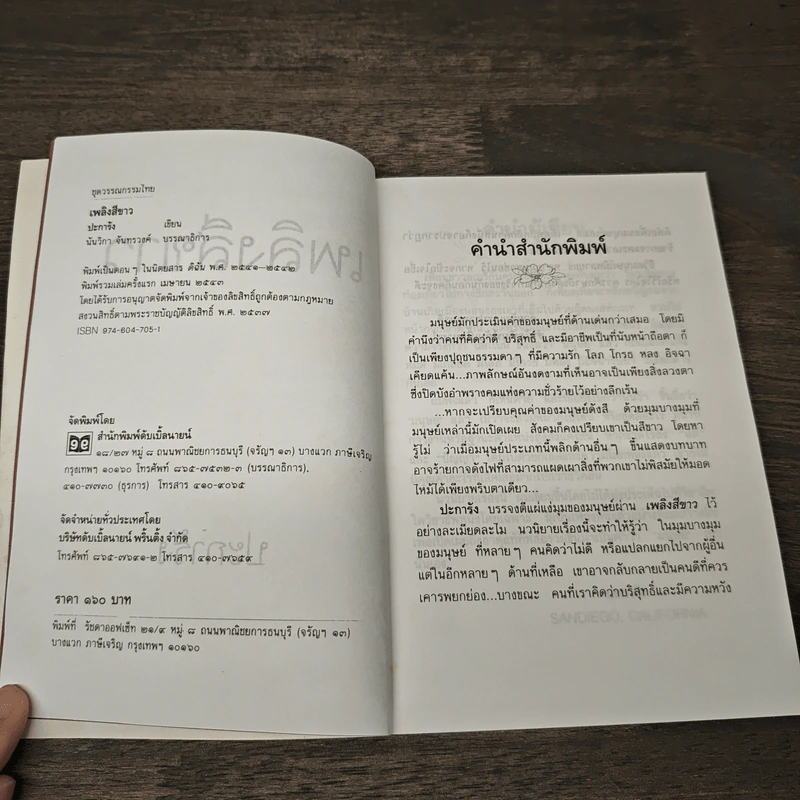 ชุดวรรณกรรมไทย
เพลิงสีขาว
ปะการัง เขียน
นันวิภา จันทรวงศ์ บรรณาธิการ
พิมพ์เป็นตอนๆ ในนิตยสาร ดิฉัน พ.ศ. ๒๕๔๑-๒๕๔๒
พิมพ์รวมเล่มครั้งแรก เมษายน ๒๕๔๓
โดยได้รับการอนุญาตจัดพิมพ์จากเจ้าของลิขสิทธิ์ถูกต้องตามกฎหมาย
สงวนสิทธิ์ตามพระราชบัญญัติลิขสิทธิ์ พ.ศ. ๒๕๓๗
ISBN 974-604-705-1
จัดพิมพ์โดย
สำนักพิมพ์ดับเบิ้ลนายน์
๑๘/๒๗ หมู่ ๘ ถนนพาณิชยการธนบุรี (จรัญฯ ๑๓) บางแวก ภาษีเจริญ
กรุงเทพฯ ๑๐๑๖๐ โทรศัพท์ ๘๖๕-๗๕๓๒-๓ (บรรณาธิการ),
๔๑๐-๗๗๓๐ (ธุรการ) โทรสาร ๔๑๐-๙๐๖๕
จัดจำหน่ายทั่วประเทศโดย
บริษัทดับเบิ้ลนายน์ พริ้นติ้ง จำกัด
โทรศัพท์ ๘๖๕-๗๖๙๑-๒ โทรสาร ๔๑๐-๗๖๕๙
ราคา ๑๖๐ บาท
พิมพ์ที่ รัชดาออฟเซ็ท ๒๑/๙ หมู่ ๘ ถนนพาณิชยการธนบุรี (จรัญฯ ๑๓)
บางแวก ภาษีเจริญ กรุงเทพฯ ๑๐๑๖๐
คำนำสำนักพิมพ์
มนุษย์มักประเมินค่าของมนุษย์ที่ด้านเด่นกว่าเสมอ โดยมิ
คำนึงว่าคนที่คิดว่าดี บริสุทธิ์ และมีอาชีพเป็นที่นับหน้าถือตา ก็
เป็นเพียงปุถุชนธรรมดาๆ ที่มีความรัก โลภ โกรธ หลง อิจฉา
เคียดแค้น...ภาพลักษณ์อันงดงามที่เห็นอาจเป็นเพียงสิ่งลวงตา
ซึ่งปิดบังอำพรางคมแห่งความชั่วร้ายไว้อย่างลึกเร้น
...หากจะเปรียบคุณค่าของมนุษย์ดังสี ด้วยมุมบางมุมที่
มนุษย์เหล่านี้มักเปิดเผย สังคมก็คงเปรียบเขาเป็นสีขาว โดยหา
รู้ไม่ ว่าเมื่อมนุษย์ประเภทนี้พลิกด้านอื่นๆ ขึ้นแสดงบทบาท
อาจร้ายกาจดังไฟที่สามารถแผดเผาสิ่งที่พวกเขาไม่พิสมัยให้มอด
ไหม้ได้เพียงพริบตาเดียว...
ปะการัง บรรจงตีแผ่แง่มุมของมนุษย์ผ่าน เพลิงสีขาว ไว้
อย่างละเมียดละไม นวนิยายเรื่องนี้จะทำให้รู้ว่า ในมุมบางมุม
ของมนุษย์ ที่หลายๆ คนคิดว่าไม่ดี หรือแปลกแยกไปจากผู้อื่น
แต่ในอีกหลายๆ ด้านที่เหลือ เขาอาจกลับกลายเป็นคนดีที่ควร
เคารพยกย่อง...บางขณะ คนที่เราคิดว่าบริสุทธิ์และมีความหวัง